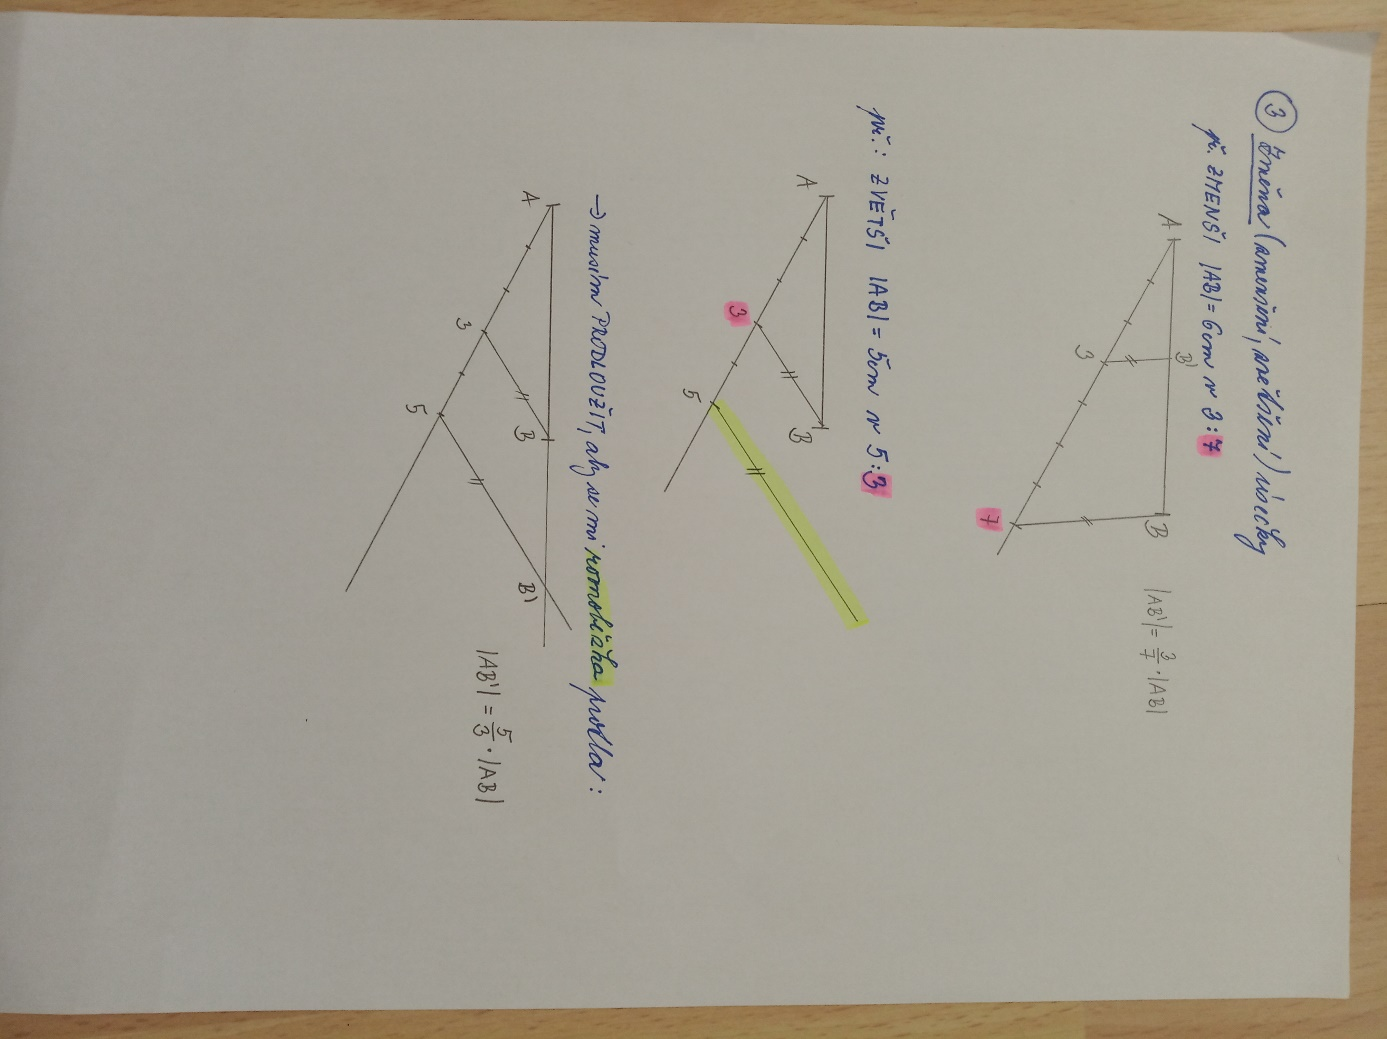 ③ Změna (zmenšení, zvětšení) úsečky
př. ZMENŠI |AB| = 6cm v 3:7
A
B'
B
3
7
|AB'| = 3/7 · |AB|
př.: ZVĚTŠI |AB| = 5cm v 5:3
A
B
3
5
→ musím PRODLOUŽIT, aby se mi rovnoběžka protla:
A
B
B'
3
5
|AB'| = 5/3 · |AB|